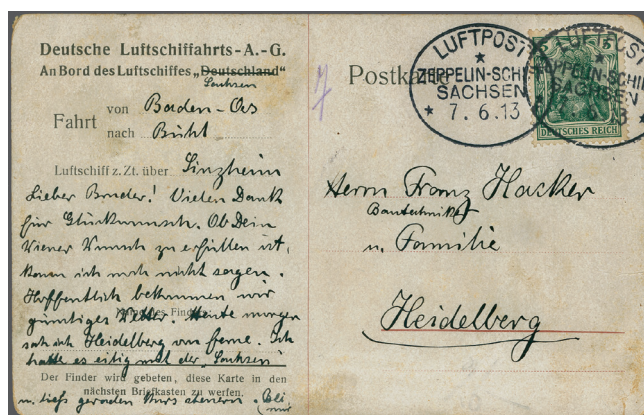 Deutsche Luftschiffahrts-A.-G.
An Bord des Luftschiffes „Deutschland"
Sachsen
Fahrt von Baden-Oos
nach Bühl
Luftschiff z. Zt. über Sinzheim
Lieber Bruder! Vielen Dank
für Glückwunsch. Ob Dein
Wiener Wunsch zu erfüllen ist,
kann ich noch nicht sagen.
Hoffentlich bekommen wir
günstiges Wetter. Heute morgen
sah ich Heidelberg von ferne. Ich
hatte es eilig mit der „Sachsen"
Der Finder wird gebeten, diese Karte in den
nächsten Briefkasten zu werfen.
u. ließ geraden Kurs steuern.
Postkarte
LUFTPOST
ZEPPELIN-SCHIFF
SACHSEN
7. 6. 13
LUFTPOST
ZEPPELIN-SCHIFF
SACHSEN
5
DEUTSCHES REICH
Herrn Franz Hacker
Bautechniker
u. Familie
Heidelberg